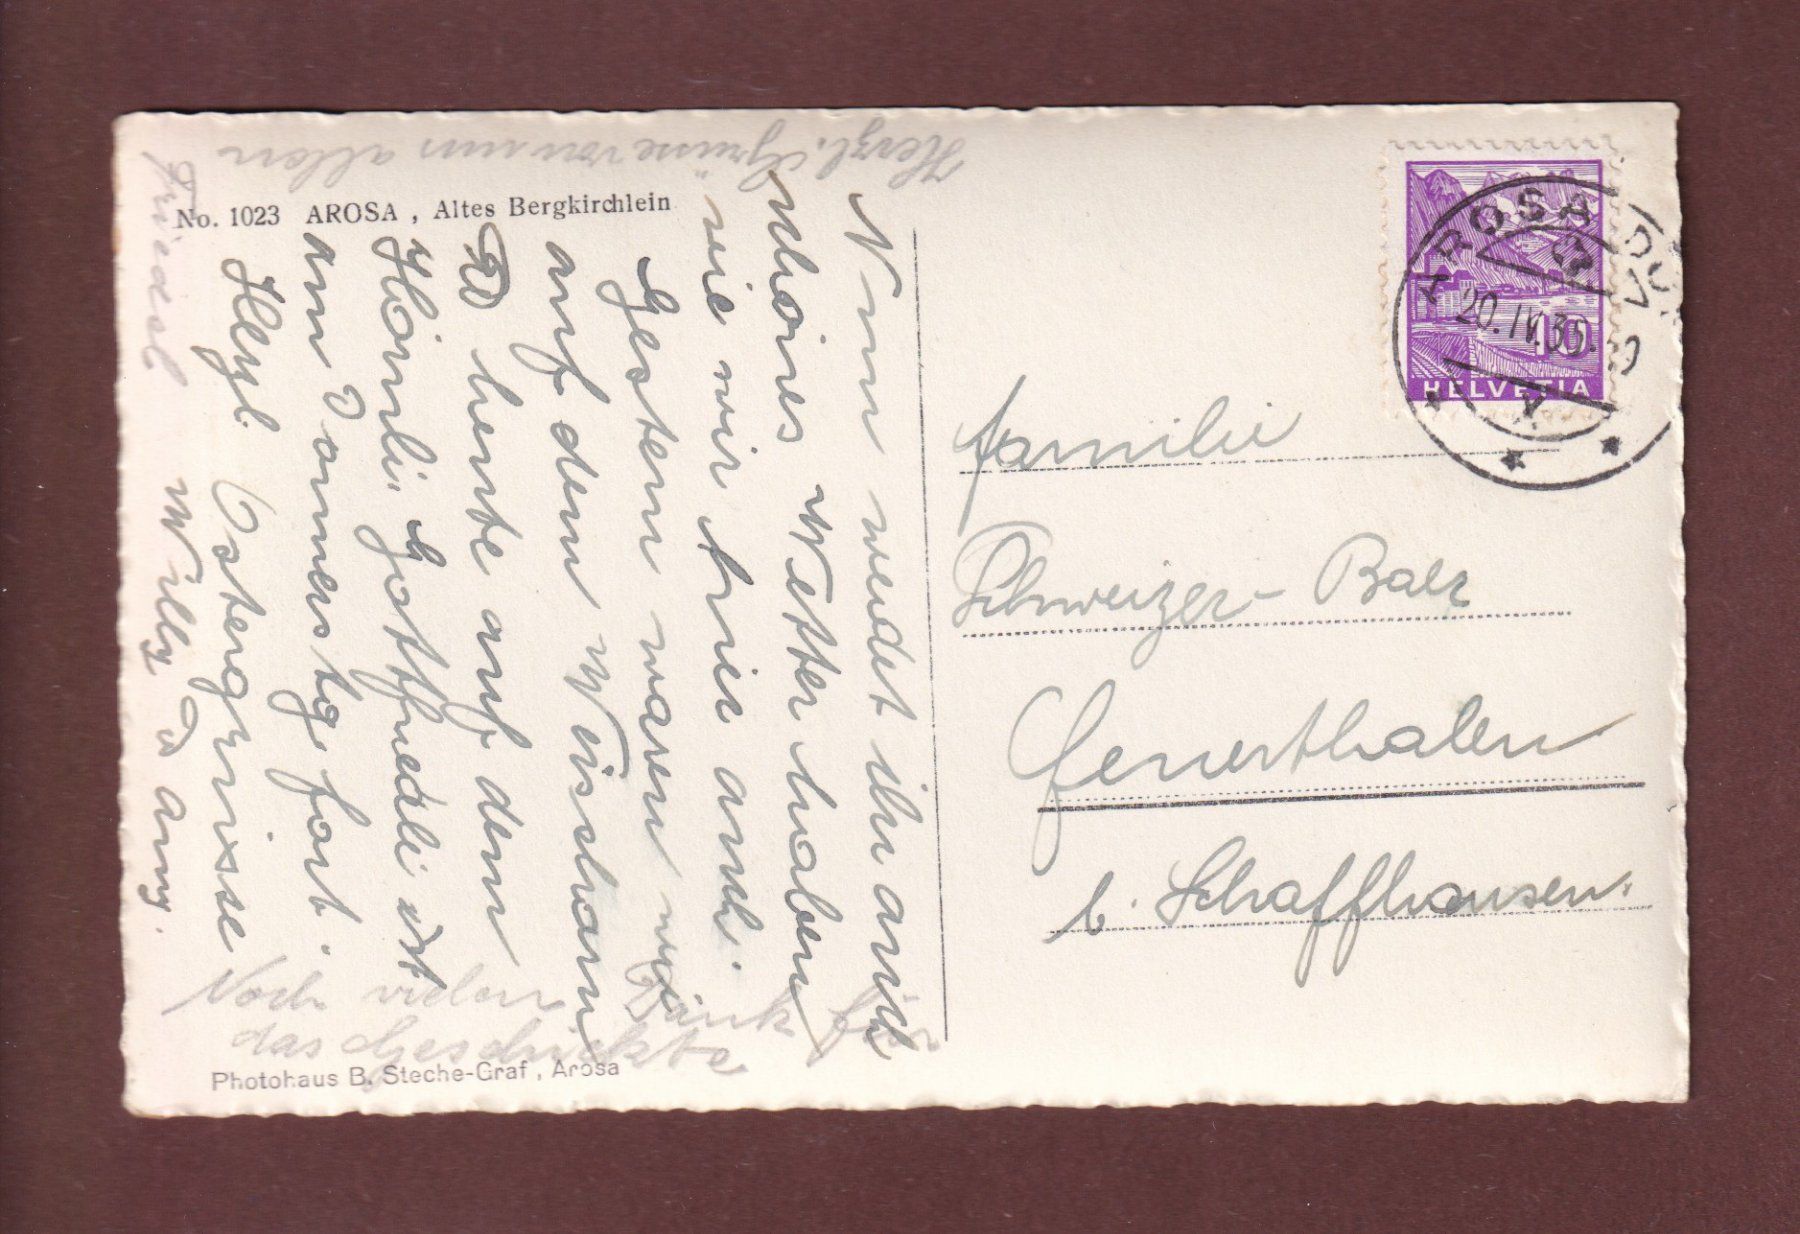 No. 1023 AROSA , Altes Bergkirchlein
Herzl. Grüsse von uns allen
Nun werdet ihr auch
schönes Wetter haben
wie wir hier auch.
Gestern waren wir
auf dem Weisshorn
& heute auf dem
Hörnli. Gottfriedli ist
am Donnerstg. fort.
Herzl. Ostergrüsse
Friedel Willy & Anny.
Noch vielen Dank für
das Geschickte
Photohaus B. Steche-Graf , Arosa
AROSA DORF
20.IV.35.
10
HELVETIA
Familie
Schweizer-Baer
Feuerthalen
b. Schaffhausen.